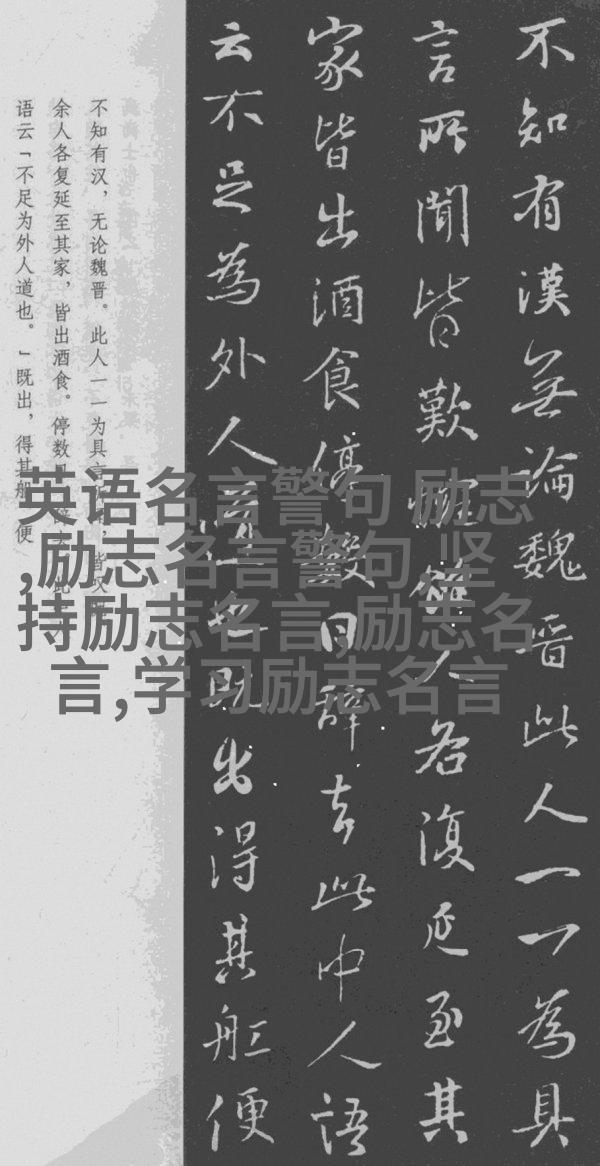 不知有漢無論魏晉此人一一為具
言所聞皆歎惋餘人各復延至其
家皆出酒食停數日辭去此中人語
云不足為外人道也既出得其舩便
不知有汉，无论魏晋。此人一一为具言，皆叹
余人各复延至其家，皆出酒食。停数此
语云「不足为外人道也。」既出，得其船，便
英语名言警句 励志
,励志名言警句,坚
持励志名言,励志名
言,学习励志名言